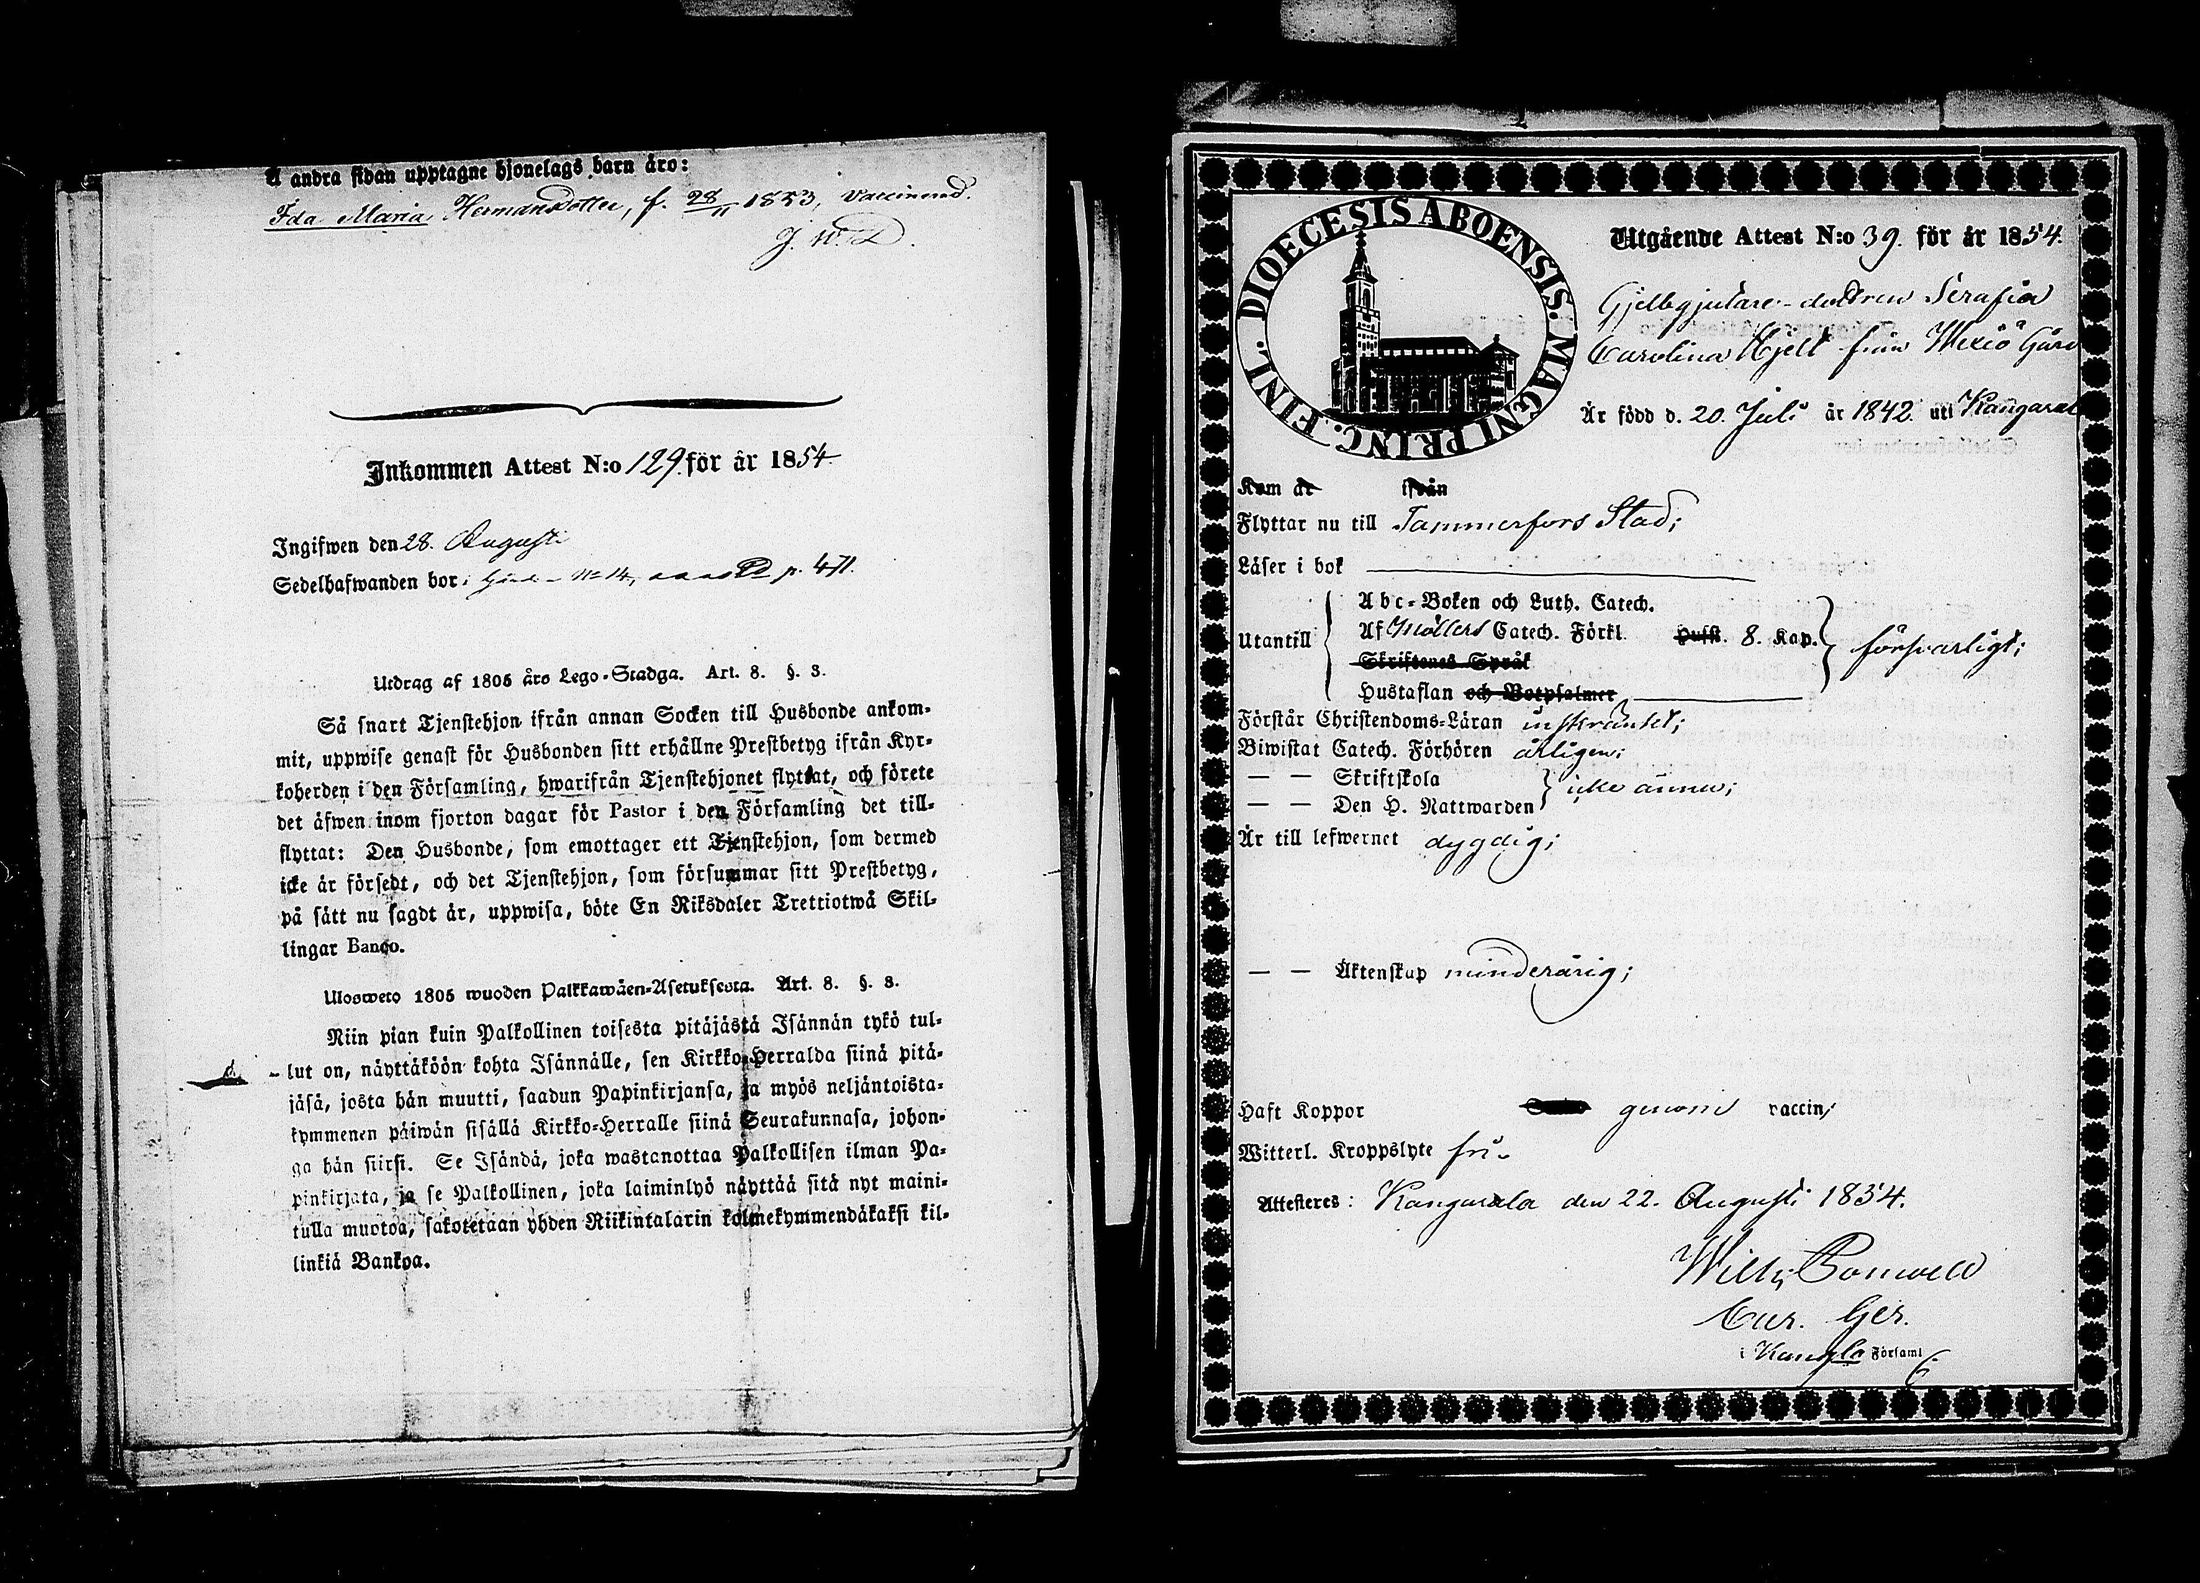 Å andra sidan upptagne hjonelags barn äro:
Ida Maria Hermansdotter, f. 28/11 1853, Vaccinerad.
Inkommen Attest N:o 129. för år 1854.
Ingifwen den 28. Augusti
Sedelhafwanden bor i Gård N:o 14, p. 471.
Utdrag af 1805 års Lego-Stadga. Art. 8. §. 3.
Så snart Tjenstehjon ifrån annan Socken till Husbonde ankom-
mit, uppwise genast för Husbonden sitt erhållne Prestbetyg ifrån Kyr-
koherden i den Församling, hwarifrån Tjenstehjonet flyttat, och förete
det äfwen inom fjorton dagar för Pastor i den Församling det till-
flyttat: Den Husbonde, som emottager ett Tjenstehjon, som dermed
icke är försedt, och det Tjenstehjon, som försummar sitt Prestbetyg,
på sätt nu sagdt är, uppwisa, böte En Riksdaler Trettiotwå Skil-
lingar Banco.
Ulosweto 1805 wuoden Palkkawäen-Asetuksesta. Art. 8. §. 3.
Niin pian kuin Palkollinen toisesta pitäjästä Isännän tykö tul-
lut on, näyttäköön kohta Isännälle, sen Kirkko-Herralda siinä pitä-
jäsä, josta hän muutti, saadun Papinkirjansa, ja myös neljäntoista-
kymmenen päiwän sisällä Kirkko-Herralle siinä Seurakunnasa, johon-
ga hän siirsi. Se Isändä, joka wastanottaa Palkollisen ilman Pa-
pinkirjata, ja se Palkollinen, joka laiminlyö näyttää sitä nyt maini-
tulla muotoa, sakotetaan yhden Riikintalarin kolmekymmendäkaksi kil-
linkiä Bankoa.
DIOECESIS ABOENSIS. MAGNI PRINC. FINL.
Utgående Attest N:o 39. för år 1854.
Gjelbgjutare-dottren Serafia
Carolina Hjelt från Wexiö Gård
Är född d. 20. Juli år 1842. uti Kangasal
Kom år ifrån
Flyttar nu till Tammerfors Stad;
Läser i bok
Utantill
Abc-Boken och Luth. Catech.
Af Möllers Catech. Förkl. Hufst. 8. Kap. försvarligt;
Skriftenes Språk
Hustaflan och Botpsalmer
Förstår Christendoms-Läran inskränkt;
Biwistat Catech. Förhören årligen;
— — Skriftskola
— — Den H. Nattwarden icke ännu;
Är till lefwernet dygdig;
— — Äktenskap minderårig;
Haft Koppor genom vaccin;
Witterl. Kroppslyte fri.
Attesteres: Kangasala den 22. Augusti 1854.
i Kangsla Församl.